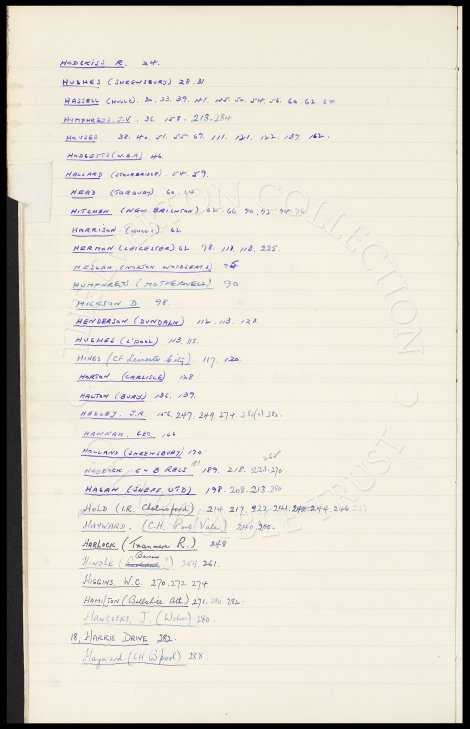 HODGKISS R. 24.
HUGHES (SHREWSBURY) 28.31
HASSELL (HULL). 30. 33. 39. 41. 45. 50. 54. 56. 60. 62. 64
HUMPHREYS. J.V. 36. 158. 213. 284
HOUSES 38. 40. 51. 55. 67. 111. 121. 122. 137. 162.
HODGETTS (W.B.A) 46.
HALLARD (STOURBRIDGE). 54. 59.
HEAD (TORQUAY) 60. 64.
HITCHEN (NEW BRIGHTON) 62. 66. 70. 92. 94. 96
HARRISON (HULL). 62
HERMON (LEICESTER) 62. 98. 118. 225.
(NORTON WOODSEATS)
HUMPHREYS (MOTHERWELL) 90
HICKSON D 98.
HENDERSON (DUNDALK) 112. 113. 123.
HUGHES (L'POOL) 113. 115.
HINES (Cf Leicester City). 117. 120.
HORTON (CARLISLE) 128
HALTON (BURY) 136. 139.
HEDLEY. J.R. 156. 247. 249. 274. 280(a) 282.
HANNAH. GEO. 166
HOLLAND (SHREWSBURY) 170
G & B RECS 181 189. 218. 223. 268 270
HAGAN (SHEFF. UTD) 198. 208. 213. 280
HOLD (I.R. Chelmsford) 214. 217. 222. 241. 242. 244. 246.
HAYWARD. (C.H. Port Vale) 240. 200.
HORLOCK (Tranmere R.) 248
HINDLE (Barrow) 259. 261.
HIGGINS. W.C. 270. 272 274
HAMILTON (Bellshill Ath.) 271. 280. 282.
HANCOCKS, J. (Wolves) 280.
18, HARRIS DRIVE 282.
Hayward (CH B'pool) 288
THE COLLECTION
TRUST